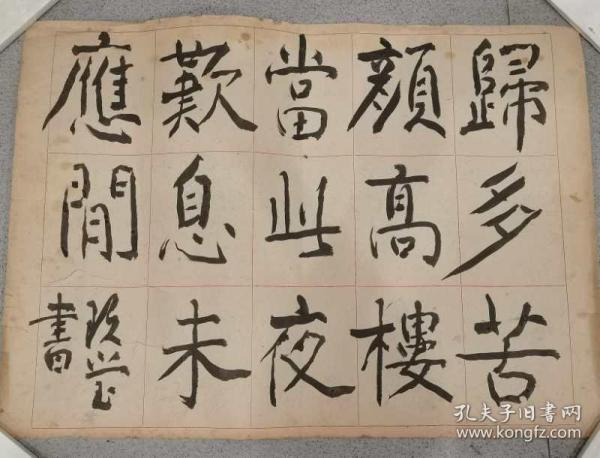 歸多苦
顏高樓
當此夜
歎息未
應閒
書
孔夫子旧書网
www.kongfz.com